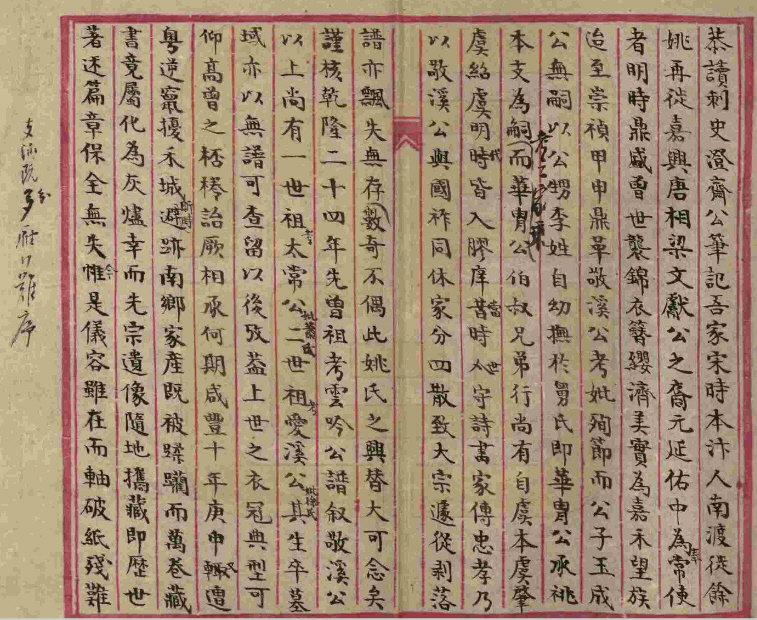 恭讀刺史澄齊公筆記吾家宋時本汴人南渡從餘
姚再徙嘉興唐相梁文獻公之裔元延佑中為常使
者明時鼎盛曾世襲錦衣簪纓濟美實為嘉禾望族
迨至崇禎甲申鼎革敬溪公考妣殉節而公子玉成
公無嗣以公甥李姓自幼撫於舅氏即華胄公承祧
本支為嗣而華胄公伯叔兄弟行尚有自虞本虞肇
虞紹虞明時皆入膠庠昔時人守詩書家傳忠孝乃
以敬溪公與國祚同休家分四散致大宗遽從剥落
譜亦飄失無存數奇不偶此姚氏之興替大可念矣
謹核乾隆二十四年先曾祖考雲吟公譜叙敬溪公
以上尚有一世祖太常公二世祖愛溪公其生卒墓
域亦以無譜可查留以後攷葢上世之衣冠典型可
仰高曾之桮棬詒厥相承何期咸豐十年庚申輙遭
粵逆竄擾禾城避跡南鄉家產既被蹂躪而萬卷藏
書竟屬化為灰燼幸而先宗遺像隨地攜藏即歷世
著述篇章保全無失惟是儀容雖在而軸破紙殘難